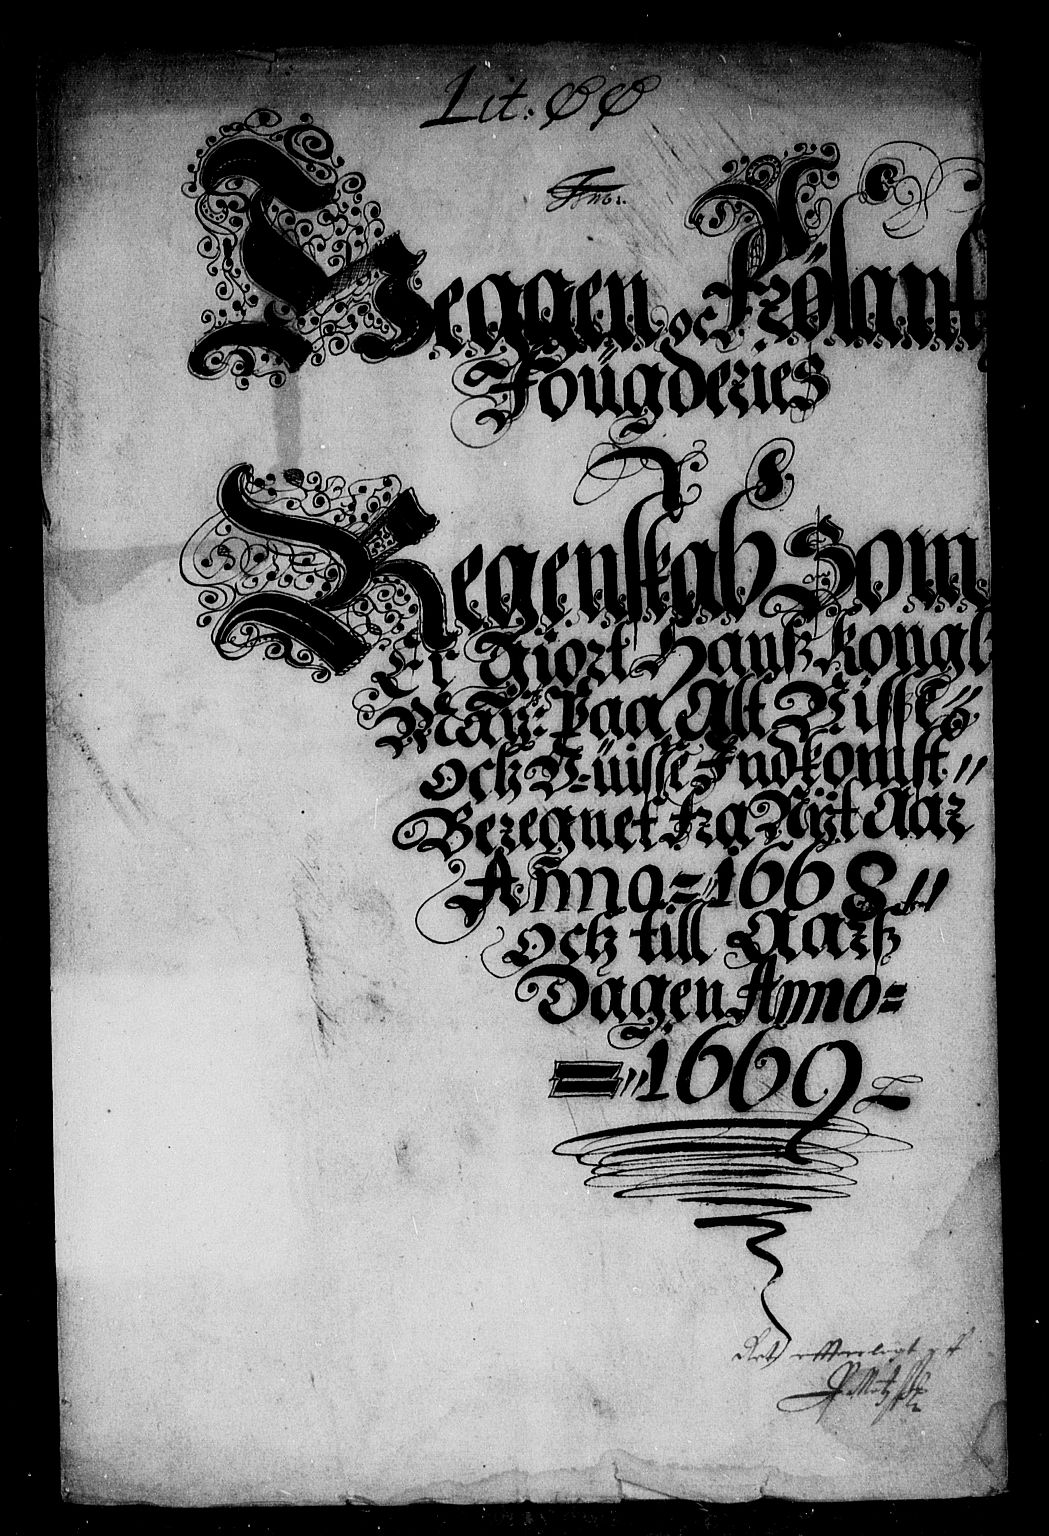 Lit: ØØ
No 1.
Heggen oc Frölant
Fougderies
Regenskab Som
Er Giort Hanß Kongl:
Maÿtt: Paa Alt Visse
och Uuisse Indkomst
Beregnet fra Nÿt Aar
Anno = 1668
och till Aarß
Dagen Anno =
= 1669